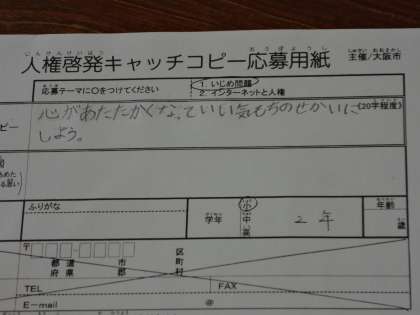 じんけんけいはつ おうぼようし しゅさい おおさかし
人権啓発キャッチコピー応募用紙 主催/大阪市
応募テーマに○をつけてください
1. いじめ問題
2. インターネットと人権
ピー
心があたたかくなっていい気もちのせかいに
しよう。
(20字程度)
ふりがな
学年
小
中
高
2年
年齢
歳
〒
都道 市 区
府県 郡 町
村
TEL
FAX
E-mail @